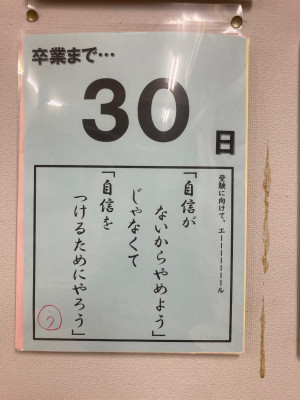 卒業まで…
30
日
受験に向けて、エーーーーーーール
「自信が
ないからやめよう」
じゃなくて
「自信を
つけるためにやろう」
う